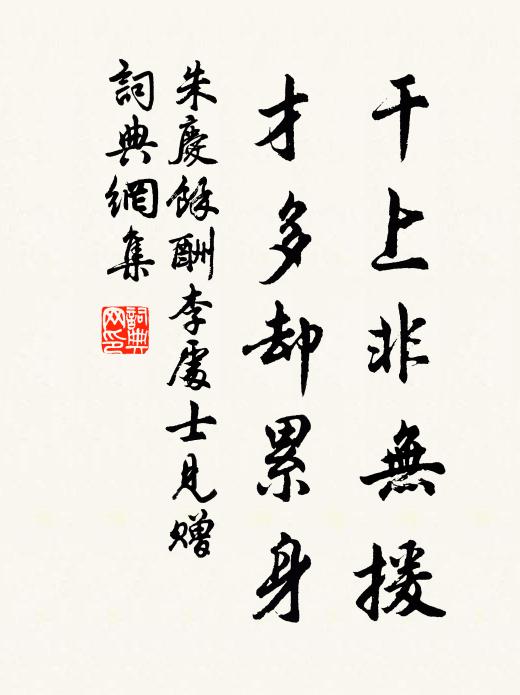 干上非無援
才多却累身
朱慶餘酬李處士見贈
詞典網集
詞典
网印